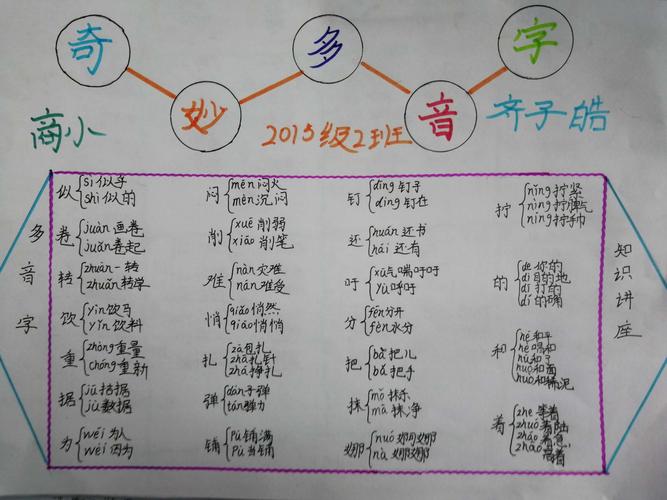 奇妙多音字
商小
2015级2班
齐子皓
多音字
知识讲座
似
sì 似乎
shì 似的
卷
juàn 画卷
juǎn 卷起
转
zhuàn 一转
zhuǎn 转学
饮
yìn 饮马
yǐn 饮料
重
zhòng 重量
chóng 重新
据
jū 拮据
jù 数据
为
wéi 为人
wèi 因为
闷
mēn 闷火
mèn 沉闷
削
xuē 削弱
xiāo 削笔
难
nàn 灾难
nán 难受
悄
qiǎo 悄然
qiāo 悄悄
扎
zā 包扎
zhā 扎针
zhá 挣扎
弹
dàn 子弹
tán 弹力
铺
pū 铺满
pù 当铺
钉
dīng 钉子
dìng 钉在
还
huán 还书
hái 还有
吁
xū 气喘吁吁
yù 呼吁
分
fēn 分开
fèn 水分
把
bà 把儿
bǎ 把手
抹
mǒ 抹杀
mā 抹净
娜
nuó 婀娜
nà 娜娜
拧
nǐng 拧紧
nìng 拧脾气
níng 拧手巾
的
de 你的
dì 目的地
dī 打的
dí 的确
和
hé 和平
hè 唱和
hú 和了
huó 和面
huò 和稀泥
着
zhe 等着
zhuó 着陆
zháo 着急
zhāo 高着